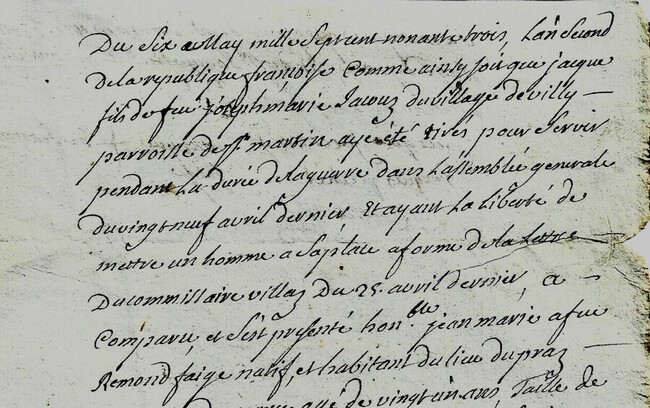 Du six may mille sept cent nonante trois, L'an second
de la republique françoise comme ainsy soit que jacque
fils de feu joseph marie Jacouz du village de villy —
parroisse de st martin aye été tirés pour servir
pendant La durée de la guerre dans L'assemblée generale
du vingt neuf avril dernier, Et ayant La liberté de
mettre un homme a sa place a forme de la lettre
Du commissaire villaz Du 25. avril dernier, a —
Comparu, et s'est presenté hon.ble jean marie a feu
Remond faige natif, et habitant du lieu du praz —
agé de vingt un ans, Taille de